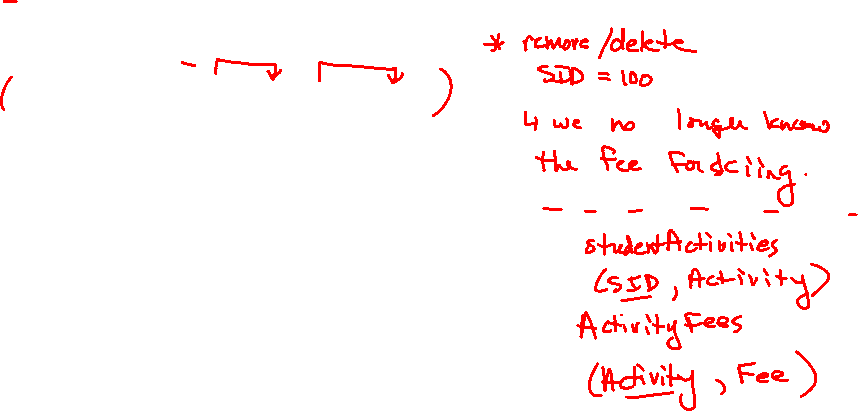 * remove/delete
SID = 100
↳ we no longer know
the fee for skiing.
studentActivities
(SID, Activity)
ActivityFees
(Activity, Fee)